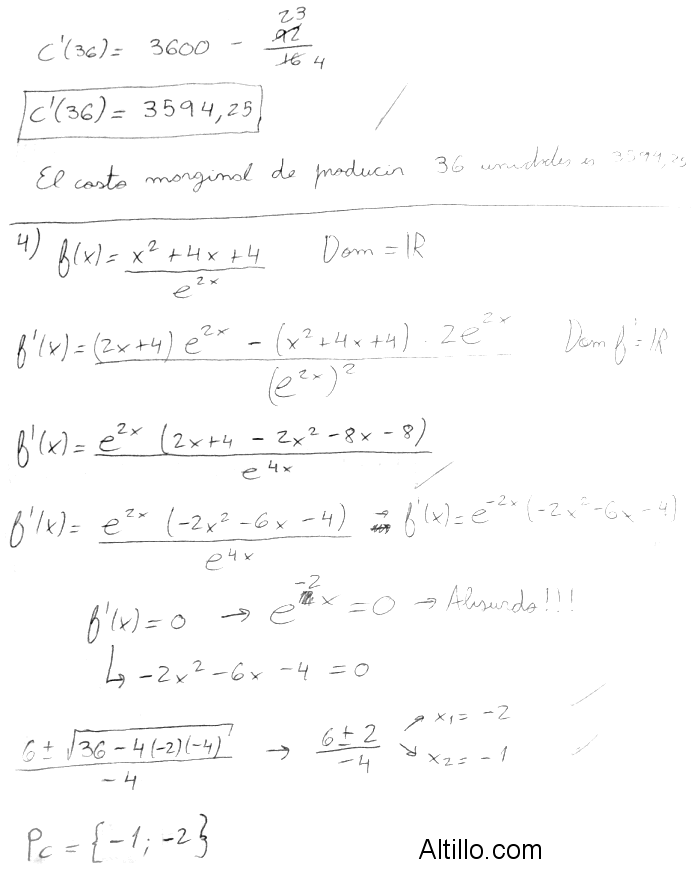 C'(36) = 3600 - 92 23 / 16 4
C'(36) = 3594,25
El costo marginal de producir 36 unidades es 3594,25
4) f(x) = x² + 4x + 4 / e^2x Dom = IR
f'(x) = (2x+4) e^2x - (x² + 4x + 4) . 2e^2x / (e^2x)² Dom f' = IR
f'(x) = e^2x (2x+4 - 2x² - 8x - 8) / e^4x
f'(x) = e^2x (-2x² - 6x - 4) / e^4x → f'(x) = e^-2x (-2x² - 6x - 4)
f'(x) = 0 → e^-2x = 0 → Absurdo!!!
↳ -2x² - 6x - 4 = 0
6 ± √36 - 4(-2)(-4) / -4 → 6 ± 2 / -4 ↗ x₁ = -2 ↘ x₂ = -1
Pc = {-1; -2}
Altillo.com